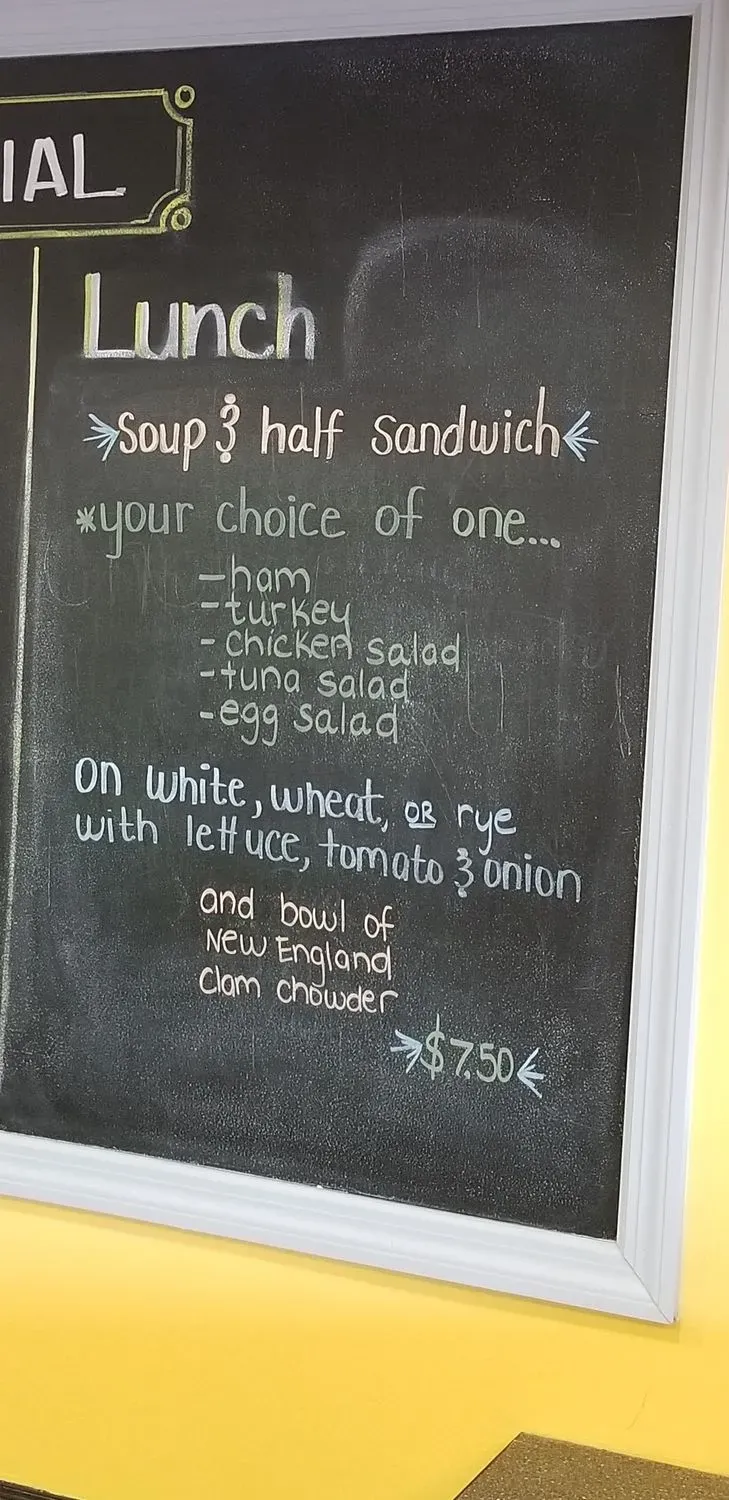 IAL
Lunch
soup & half sandwich
*your choice of one...
-ham
-turkey
-chicken salad
-tuna salad
-egg salad
on white, wheat, OR rye
with lettuce, tomato & onion
and bowl of
New England
Clam chowder
$7.50